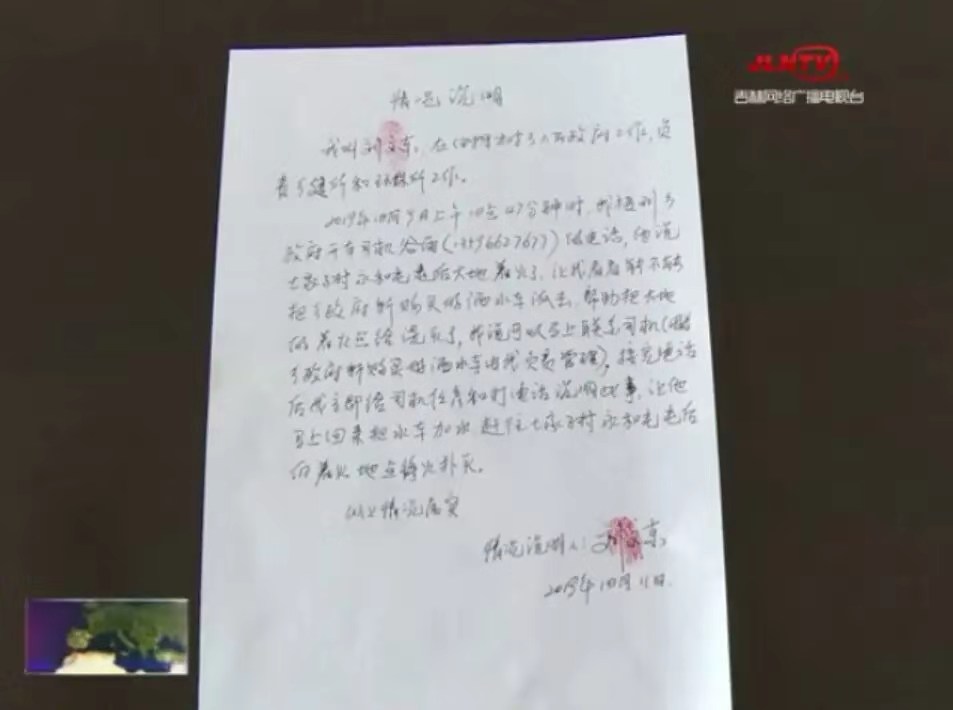 JLNTV
吉林网络广播电视台
情况说明
我叫刘 东，在 乡人民政府工作，负
责乡建所和环保所工作。
2019年10月9日上午10点47分钟时，我接到乡
政府 司机 电话，他说
村永和屯 后大地着火了，让我看看能不能
把乡政府新购买的洒水车派去，帮助把大地
的着火点给浇灭了，我说可以马上联系司机（
乡政府新购买的洒水车由我负责管理）。接完电话
后我立即给司机任 和打电话说明此事，让他
马上回来把水车加水赶往 村永和屯 后
的着火地点将火扑灭。
以上情况属实
情况说明人：刘 东
2019年10月11日